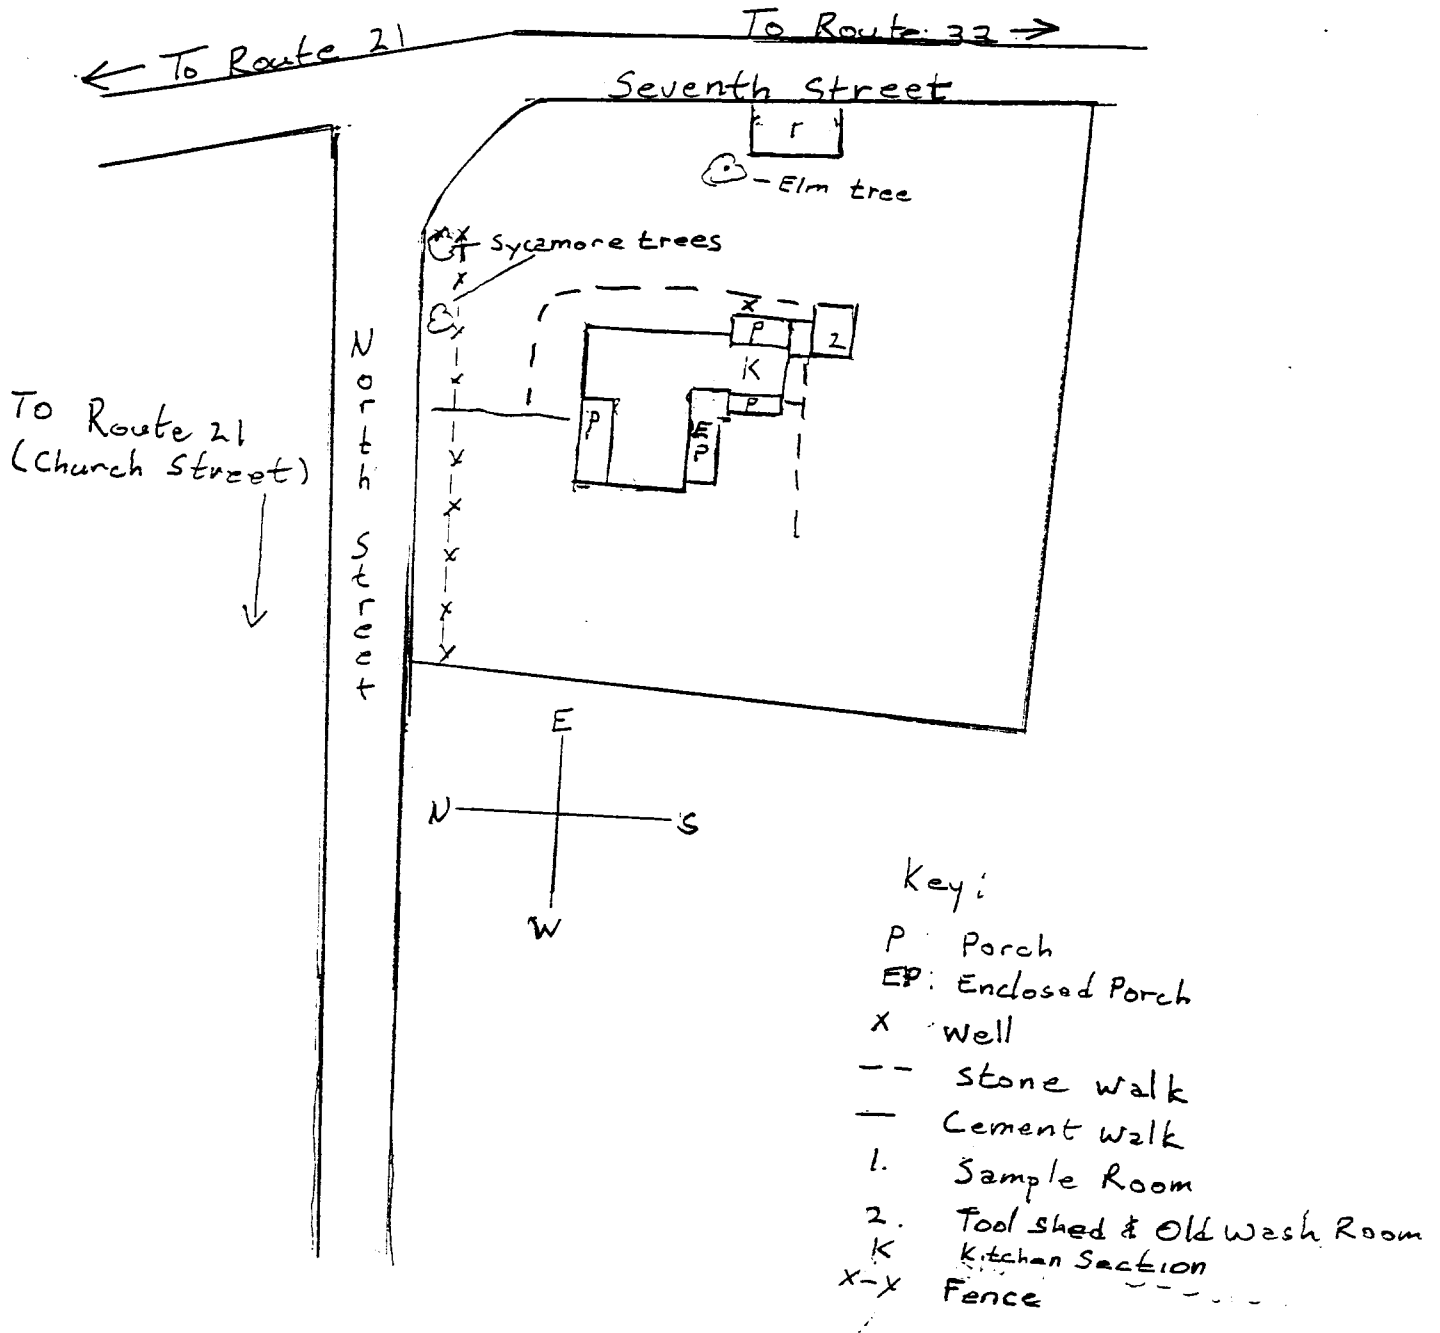 To Route 21
To Route 33
Seventh Street
r
Elm tree
Sycamore trees
x
P
2
K
P
P
EP
North Street
To Route 21
(Church Street)
E
N
S
W
Key:
P Porch
EP: Enclosed Porch
X Well
-- Stone Walk
— Cement Walk
1. Sample Room
2. Tool Shed & Old Wash Room
K Kitchen Section
X-X Fence